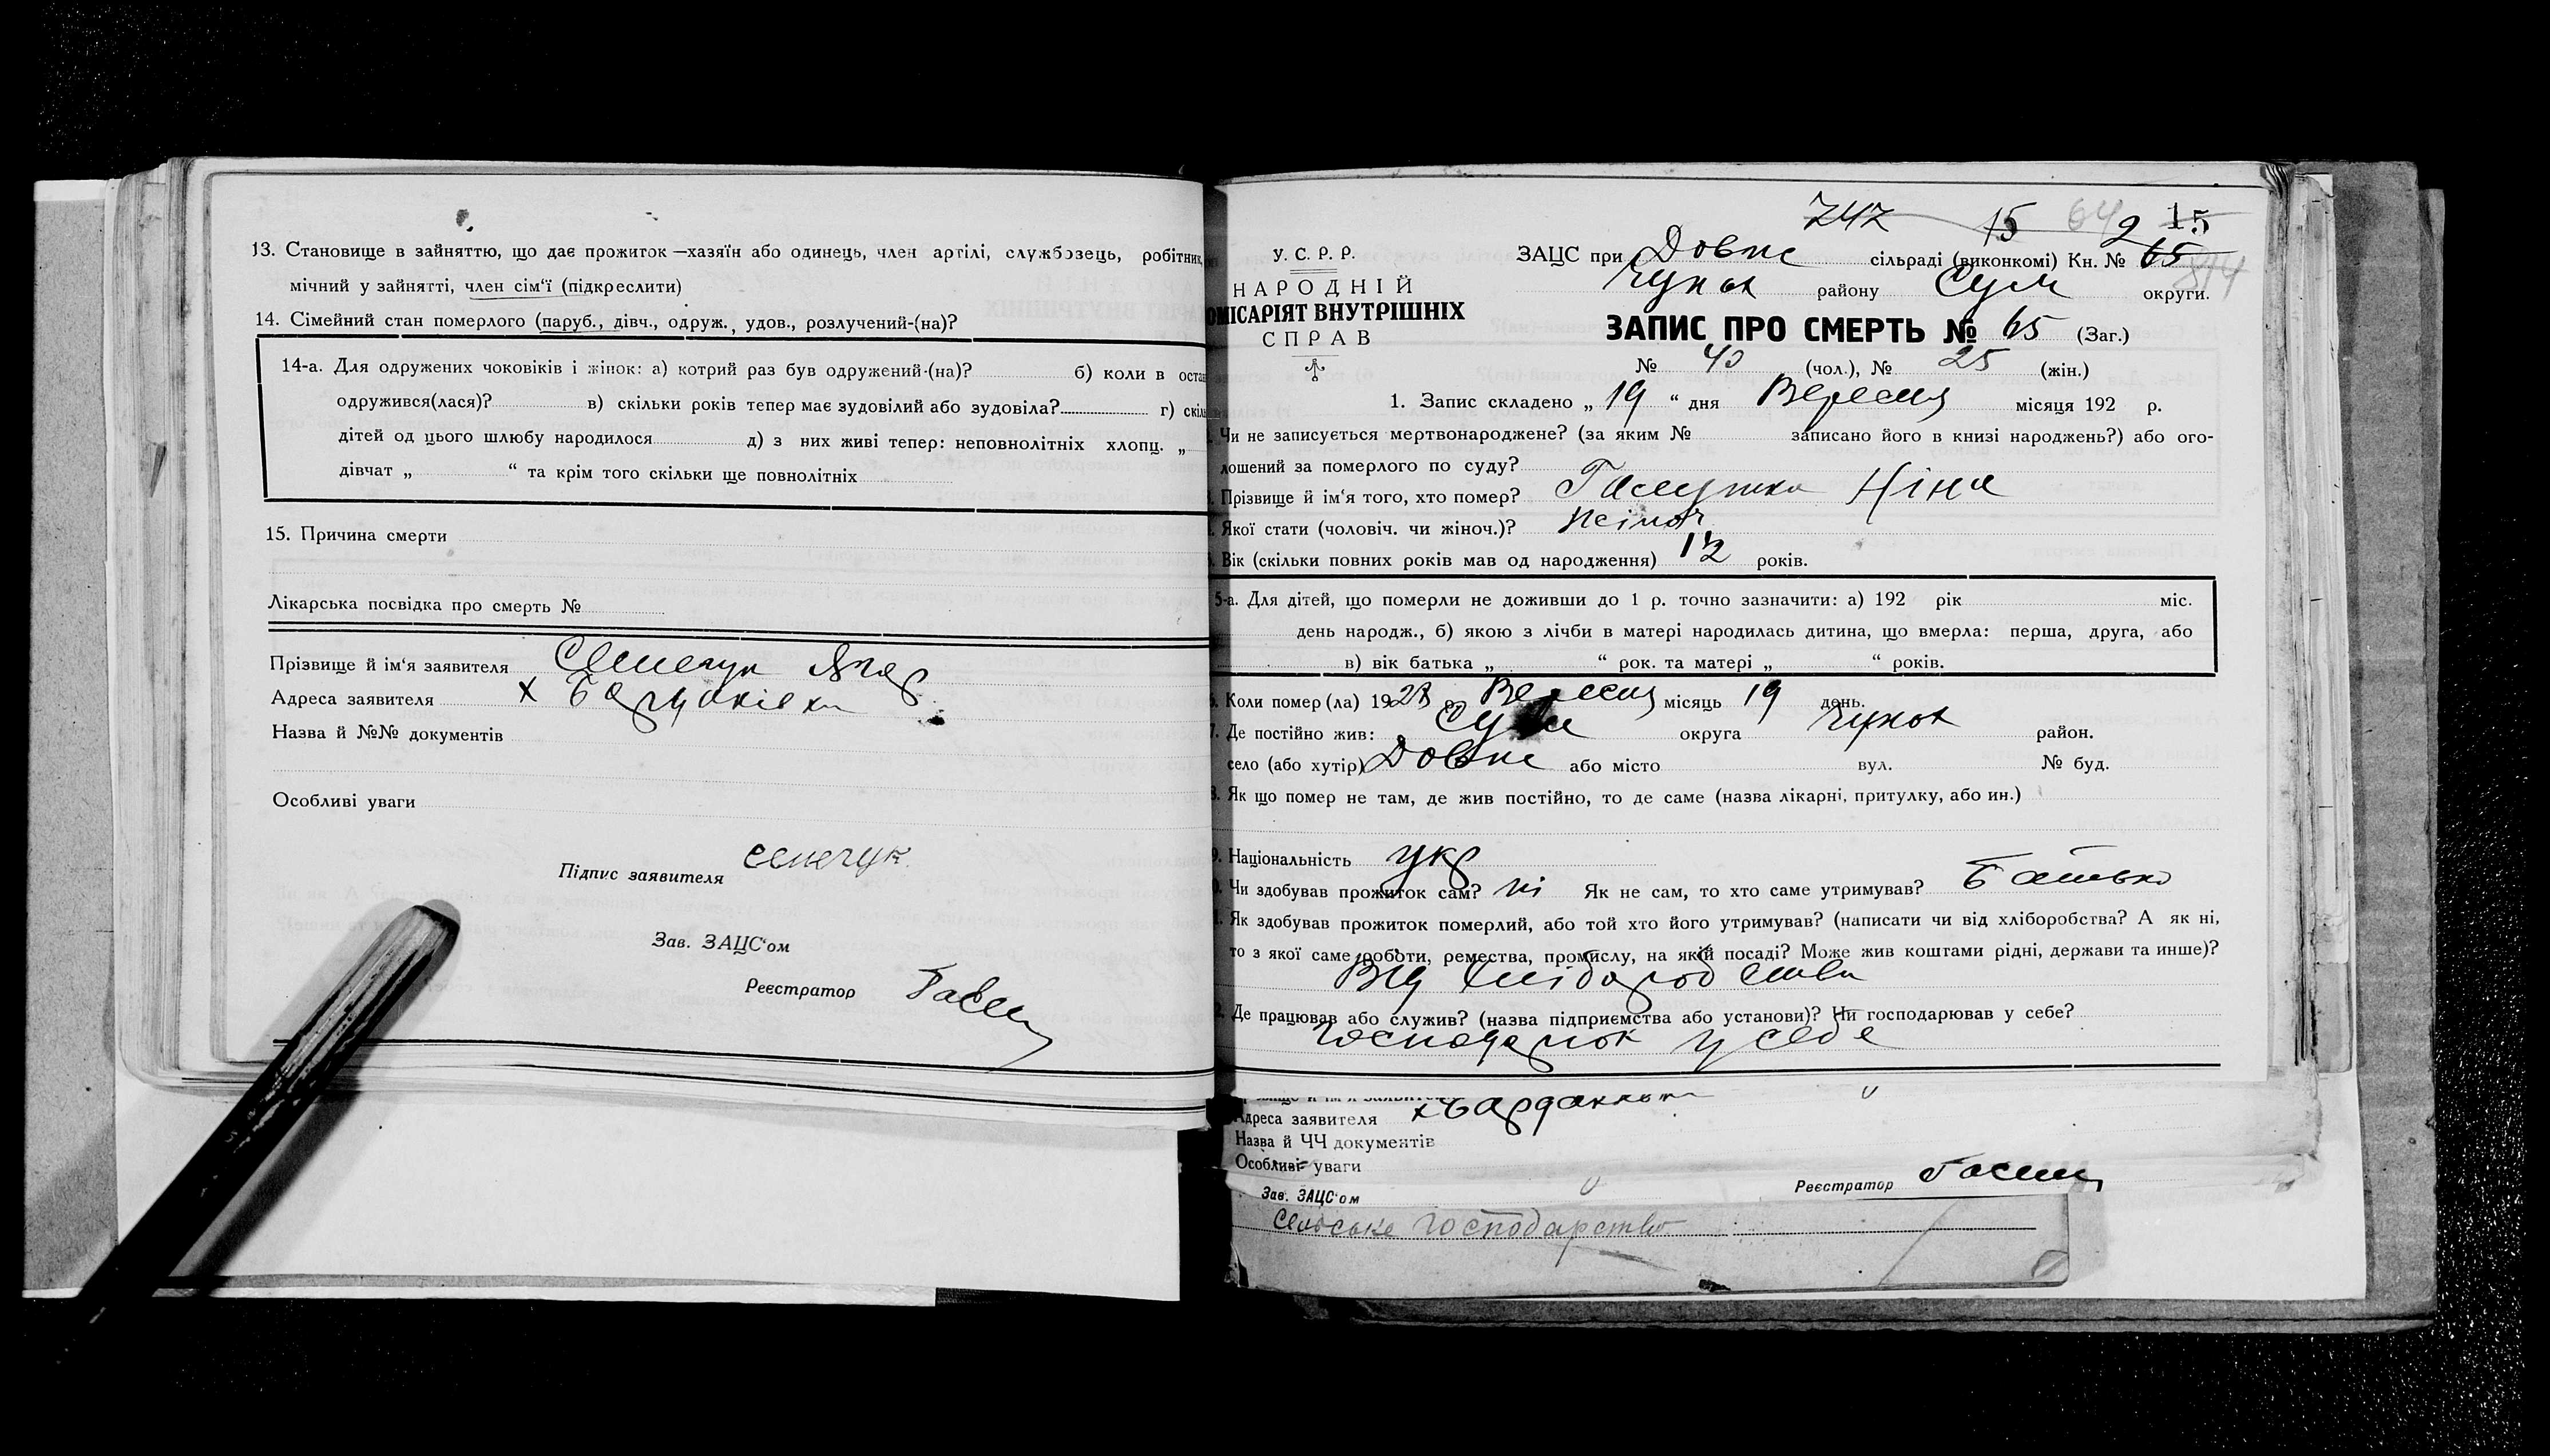 13. Становище в зайняттю, що дає прожиток —хазяїн або одинець, член артілі, службовець, робітник,
мічний у зайнятті, член сім‘ї (підкреслити)
14. Сімейний стан померлого (паруб., дівч., одруж., удов., розлучений-(на)?
14-а. Для одружених чоковіків і жінок: а) котрий раз був одружений-(на)? б) коли в остан
одружився(лася)? в) скільки років тепер має зудовілий або зудовіла? г) скіль
дітей од цього шлюбу народилося д) з них живі тепер: неповнолітніх хлопц. „
дівчат „ “ та крім того скільки ще повнолітніх
15. Причина смерти
Лікарська посвідка про смерть №
Прізвище й ім‘я заявителя
Адреса заявителя х
Назва й №№ документів
Особливі уваги
Підпис заявителя
Зав. ЗАЦС‘ом
Реєстратор
747 15 64 2 15
У. С. Р. Р.
НАРОДНІЙ
ОМІСАРІЯТ ВНУТРІШНІХ
СПРАВ
ЗАЦС при Довж сільраді (виконкомі) Кн. № 65
району Сум округи.
ЗАПИС ПРО СМЕРТЬ № 65 (Заг.)
№ 40 (чол.), № 25 (жін.)
1. Запис складено „ 19 “ дня Вересня місяця 192 р.
Чи не записується мертвонароджене? (за яким № записано його в книзі народжень?) або ого-
лошений за померлого по суду?
Прізвище й ім‘я того, хто помер? Галушка Ніна
Якої стати (чоловіч. чи жіноч.)? жіноч
Вік (скільки повних років мав од народження) 12 років.
5-а. Для дітей, що померли не доживши до 1 р. точно зазначити: а) 192 рік міс.
день народж., б) якою з лічби в матері народилась дитина, що вмерла: перша, друга, або
в) вік батька „ “ рок. та матері „ “ років.
Коли помер (ла) 1928 р. Вересня місяць 19 день.
7. Де постійно жив: Сум округа район.
село (або хутір) Довж або місто вул. № буд.
8. Як що помер не там, де жив постійно, то де саме (назва лікарні, притулку, або ин.)
9. Національність укр
Чи здобував прожиток сам? ні Як не сам, то хто саме утримував? Батько
Як здобував прожиток померлий, або той хто його утримував? (написати чи від хліборобства? А як ні,
то з якої саме роботи, ремества, промислу, на якій посаді? Може жив коштами рідні, держави та инше)?
Від хліборобства
Де працював або служив? (назва підприємства або установи)? Чи господарював у себе?
у себе
Адреса заявителя х
Назва й ЧЧ документів
Особливі уваги
Зав. ЗАЦС‘ом Реєстратор
Сельське господарство